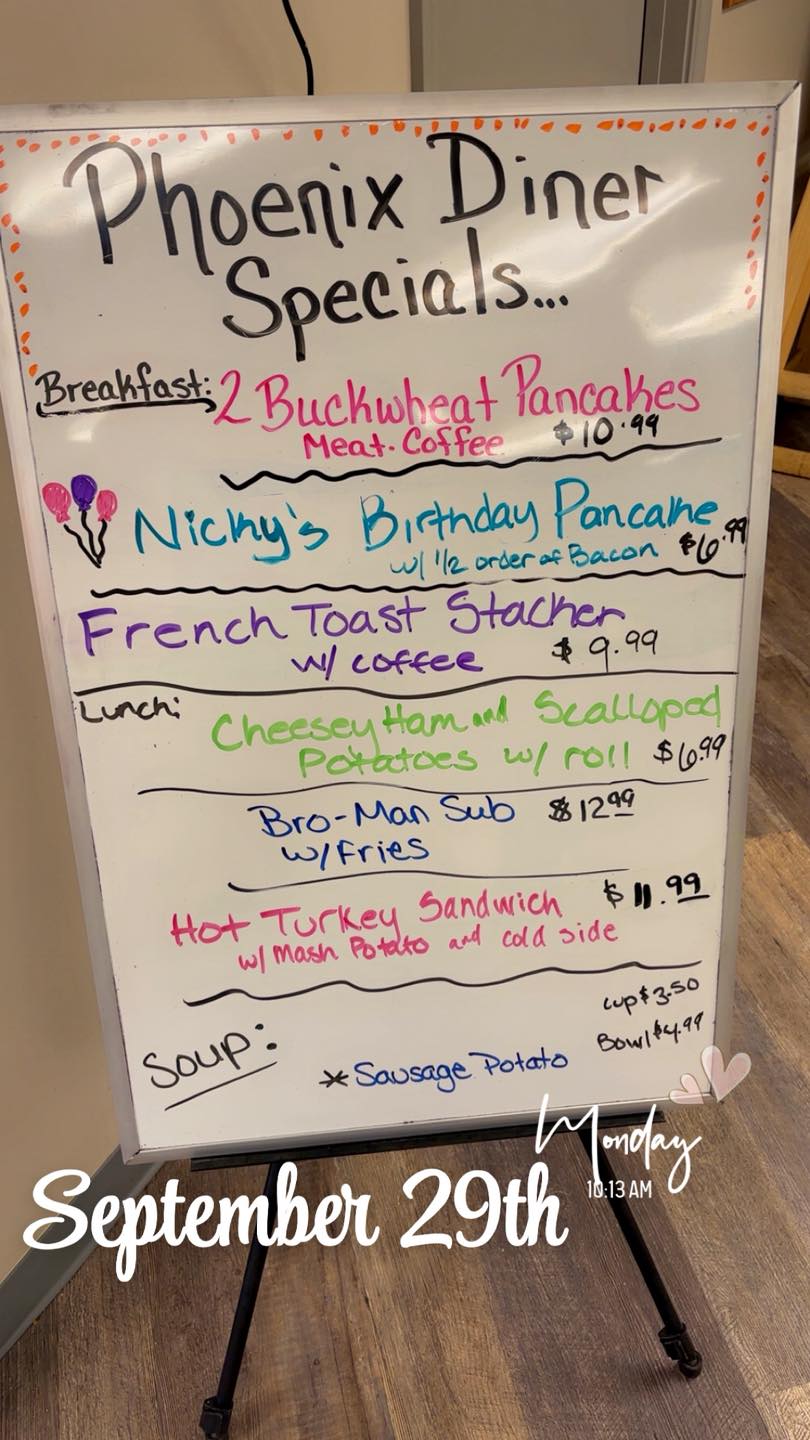 Phoenix Diner
Specials...
Breakfast: 2 Buckwheat Pancakes
Meat. Coffee $10.99
Nicky's Birthday Pancake
w/ 1/2 order of Bacon $6.99
French Toast Stacker
w/ coffee $9.99
Lunch: Cheesey Ham and Scalloped
Potatoes w/ roll $6.99
Bro-Man Sub $12.99
w/ Fries
Hot Turkey Sandwich $11.99
w/ Mash Potato and cold side
Soup: cup $3.50
Bowl $4.99
* Sausage Potato
Monday
10:13 AM
September 29th